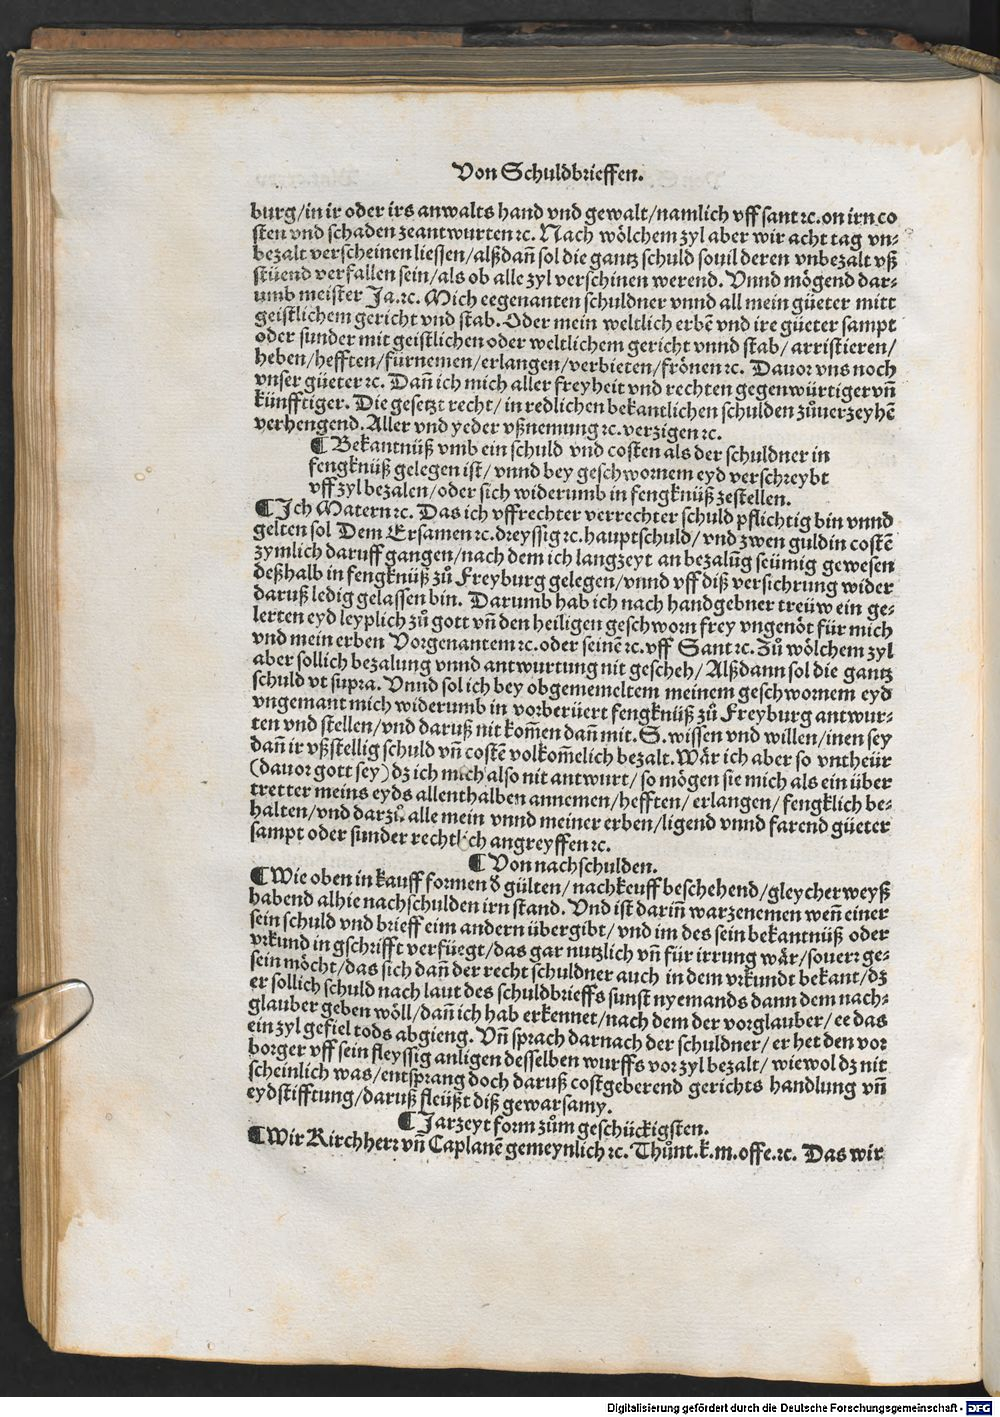 Von Schuldbrieffen.
burg/in ir oder irs anwalts hand vnd gewalt/namlich vff sant ꝛc. on irn co
sten vnd schaden zeantwurten ꝛc. Nach wölchem zyl aber wir acht tag vn⸗
bezalt verscheinen liessen/alßdañ sol die gantz schuld souil deren vnbezalt vß
stüend verfallen sein/als ob alle zyl verschinen werend. Vnnd mögend dar⸗
umb meister Ja.ꝛc. Mich eegenanten schuldner vnnd all mein güeter mitt
geistlichem gericht vnd stab. Oder mein weltlich erbẽ vnd ire güeter sampt
oder sunder mit geistlichen oder weltlichem gericht vnnd stab/ arristieren/
heben/hefften/fürnemen/erlangen/verbieten/frönen ꝛc. Dauor vns noch
vnser güeter ꝛc. Dañ ich mich aller freyheit vnd rechten gegenwürtiger vñ
künfftiger. Die gesetzt recht/ in redlichen bekantlichen schulden zůuerzeyhẽ
verhengend. Aller vnd yeder vßnemung ꝛc. verzigen ꝛc.
¶ Bekantnüß vmb ein schuld vnd costen als der schuldner in
fengknüß gelegen ist/ vnnd bey geschwornem eyd verschreybt
vff zyl bezalen/oder sich widerumb in fengknüß zestellen.
¶ Ich Matern ꝛc. Das ich vffrechter verrechter schuld pflichtig bin vnnd
gelten sol Dem Ersamen ꝛc. dreyssig ꝛc. hauptschuld/ vnd zwen guldin costẽ
zymlich daruff gangen/nach dem ich langzeyt an bezalũg seümig gewesen
deßhalb in fengknüß zů Freyburg gelegen/vnnd vff diß versichrung wider
daruß ledig gelassen bin. Darumb hab ich nach handgebner treüw ein ge⸗
lerten eyd leyplich zů gott vñ den heiligen geschworn frey vngenöt für mich
vnd mein erben Vorgenantem ꝛc. oder seinẽ ꝛc. vff Sant ꝛc. Zů wölchem zyl
aber sollich bezalung vnnd antwurtung nit gescheh/ Alßdann sol die gantz
schuld vt supra. Vnnd sol ich bey obgememeltem meinem geschwornem eyd
vngemant mich widerumb in vorberüert fengknüß zů Freyburg antwur⸗
ten vnd stellen/vnd daruß nit kom̃en dañ mit. S. wissen vnd willen/inen sey
dañ ir vßstellig schuld vñ costẽ volkom̃elich bezalt. Wär ich aber so vntheür
(dauor gott sey) dz ich mich also nit antwurt/ so mögen sie mich als ein über
tretter meins eyds allenthalben annemen/hefften/ erlangen/ fengklich be⸗
halten/vnd darzů alle mein vnnd meiner erben/ligend vnnd farend güeter
sampt oder sunder rechtlich angreyffen ꝛc.
¶ Von nachschulden.
¶ Wie oben in kauff formen d̕ gülten/ nachkeuff beschehend/gleycher weyß
habend alhie nachschulden irn stand. Vnd ist dariñ warzenemen weñ einer
sein schuld vnd brieff eim andern übergibt/ vnd im des sein bekantnüß oder
vrkund in gschrifft verfüegt/das gar nutzlich vñ für irrung wär/souerr ge⸗
sein möcht/das sich dañ der recht schuldner auch in dem vrkundt bekant/dz
er sollich schuld nach laut des schuldbrieffs sunst nyemands dann dem nach⸗
glauber geben wöll/dañ ich hab erkennet/nach dem der vorglauber/ ee das
ein zyl gefiel tods abgieng. Vñ sprach darnach der schuldner/ er het den vor
borger vff sein fleyssig anligen desselben wurffs vor zyl bezalt/ wiewol dz nit
scheinlich was/entsprang doch daruß costgeberend gerichts handlung vñ
eydstifftung/daruß fleüßt diß gewarsamy.
¶ Jarzeyt form zům geschückigsten.
¶ Wir Kirchherr vñ Caplanẽ gemeynlich ꝛc. Thůnt.k.m.offe.ꝛc. Das wir
Digitalisierung gefördert durch die Deutsche Forschungsgemeinschaft - DFG